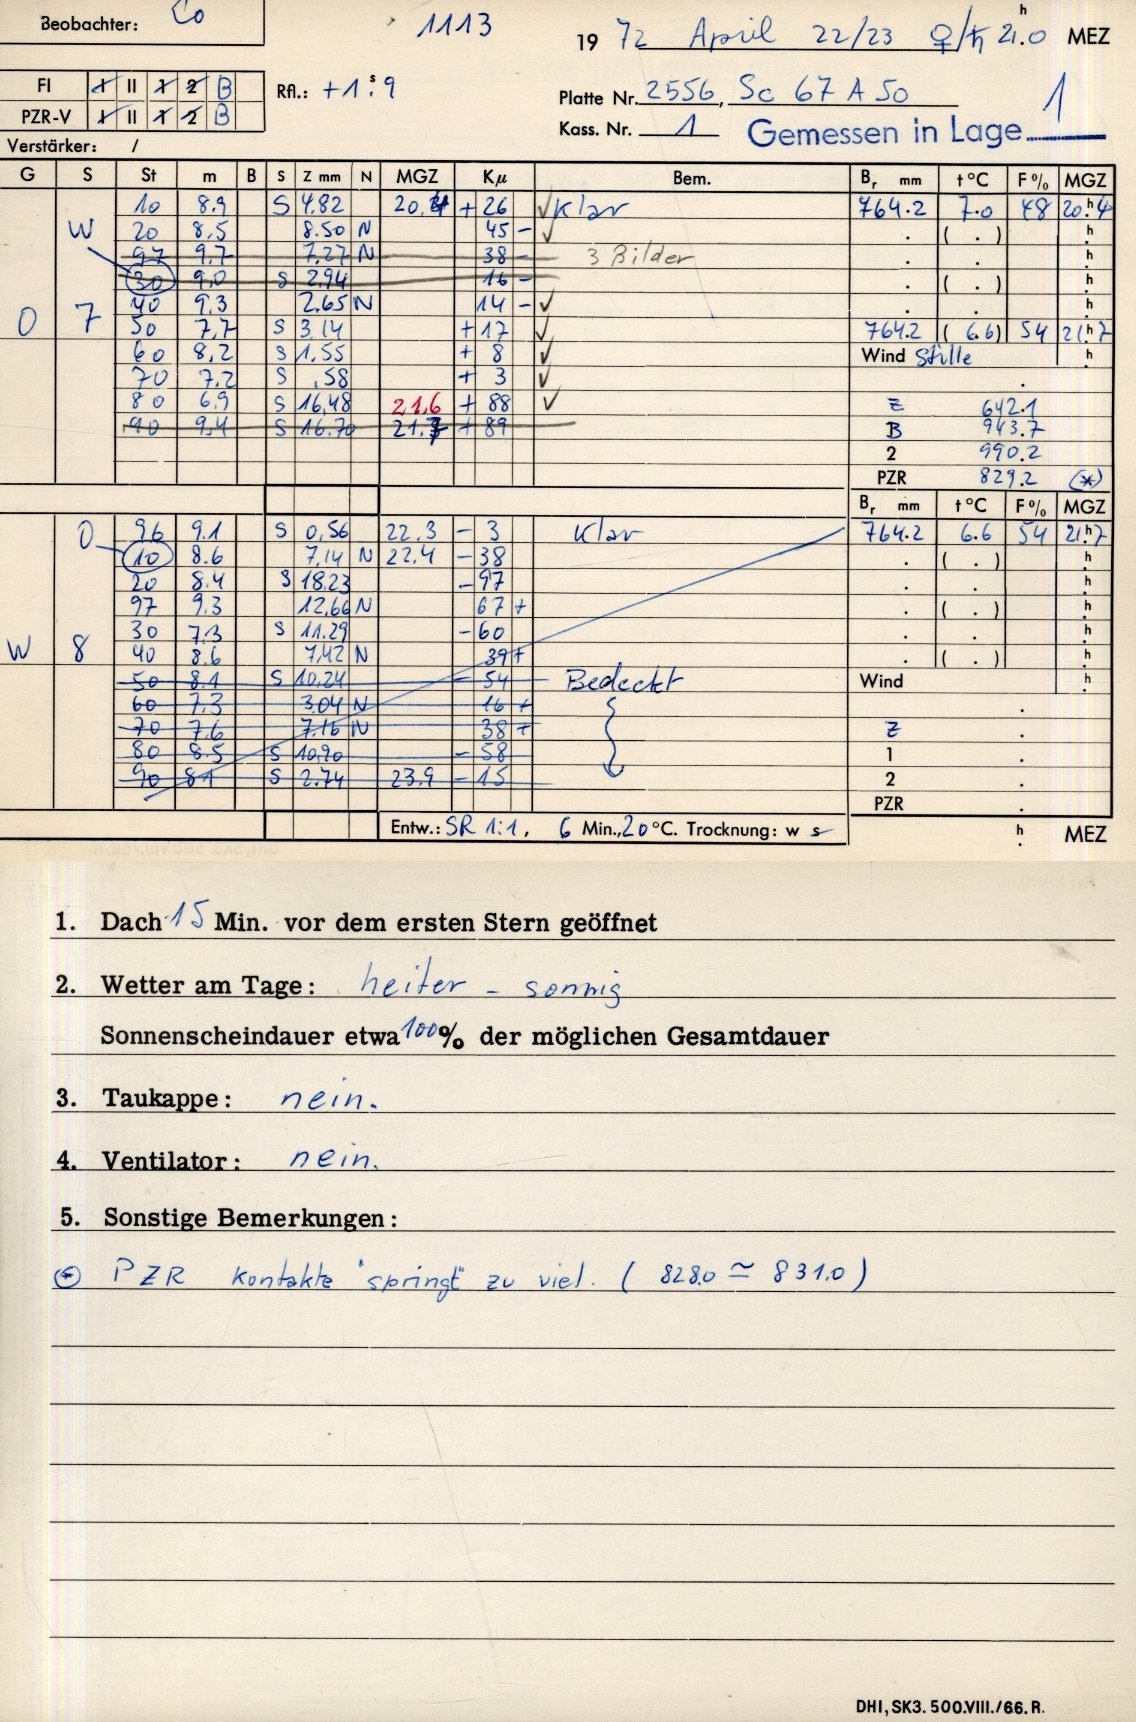 Beobachter: Co
1113
19 72 April 22/23 ♀/♄ 21.0 h MEZ
FI I II 1 2 B
PZR-V I II 1 2 B
Rfl.: +1.s9
Platte Nr. 2556, Sc 67 A 50
Kass. Nr. 1
Gemessen in Lage 1
Verstärker: /
G S St m B S Z mm N MGZ Kμ Bem. Br mm t °C F % MGZ
10 8.9 S 4.82 20.4 +26 ✓ Klar 764.2 7.0 48 20.h4
W 20 8.5 8.50 N 45 - ✓ . ( . ) h
97 9.7 7.27 N 38 - 3 Bilder . . h
30 9.0 S 2.94 16 - . ( . ) h
40 9.3 2.65 N 14 - ✓ . . h
O 7 50 7.7 S 3.14 +17 ✓ 764.2 ( 6.6) 54 21.h7
60 8.2 S 1.55 + 8 ✓ Wind Stille h
70 7.2 S .58 + 3 ✓ .
80 6.9 S 16.48 21.6 + 88 ✓ Z 642.1
90 9.4 S 16.70 21.7 + 89 B 943.7
2 990.2
PZR 829.2 (*)
Br mm t °C F % MGZ
O 96 9.1 S 0.56 22.3 - 3 Klar 764.2 6.6 54 21.h7
10 8.6 7.14 N 22.4 -38 . ( . ) h
20 8.4 S 18.23 -97 . . h
97 9.3 12.66 N 67 + . ( . ) h
30 7.3 S 11.29 -60 . . h
W 8 40 8.6 7.42 N 39+ . ( . ) h
50 8.1 S 10.24 - 54 Bedeckt Wind h
60 7.3 3.04 N 16 + .
70 7.6 7.16 N 38 + Z .
80 8.5 S 10.90 - 58 1 .
90 8.1 S 2.74 23.9 - 15 2 .
PZR .
Entw.: SR 1:1, 6 Min., 20 °C. Trocknung: w s
h MEZ
1. Dach 15 Min. vor dem ersten Stern geöffnet
2. Wetter am Tage: heiter - sonnig
Sonnenscheindauer etwa 100% der möglichen Gesamtdauer
3. Taukappe: nein.
4. Ventilator: nein.
5. Sonstige Bemerkungen:
PZR kontakte "springt" zu viel. ( 828.0 ≃ 831.0 )
DHI, SK3. 500.VIII./66. R.